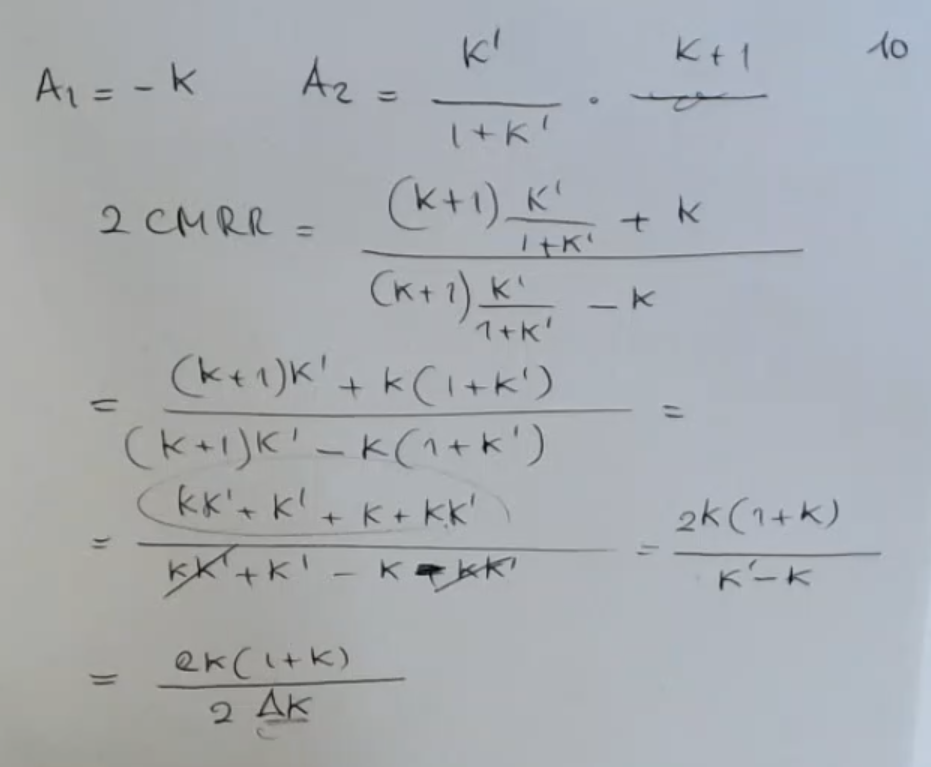 A₁ = - K A₂ = K' / (1 + K') · (K + 1) / 10
2 CMRR = ((K+1) K' / (1+K') + K) / ((K+1) K' / (1+K') - K)
= ((K+1)K' + K(1+K')) / ((K+1)K' - K(1+K')) =
= (KK' + K' + K + KK') / (KK' + K' - K - KK') = 2K(1+K) / (K'-K)
= 2K(1+K) / (2 ΔK)